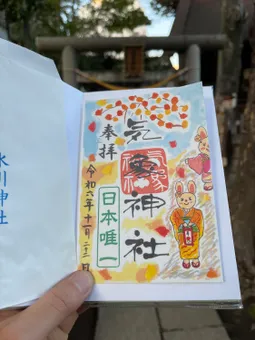 奉拝
気象神社
令和六年十一月二十三日
日本唯一
氷川神社